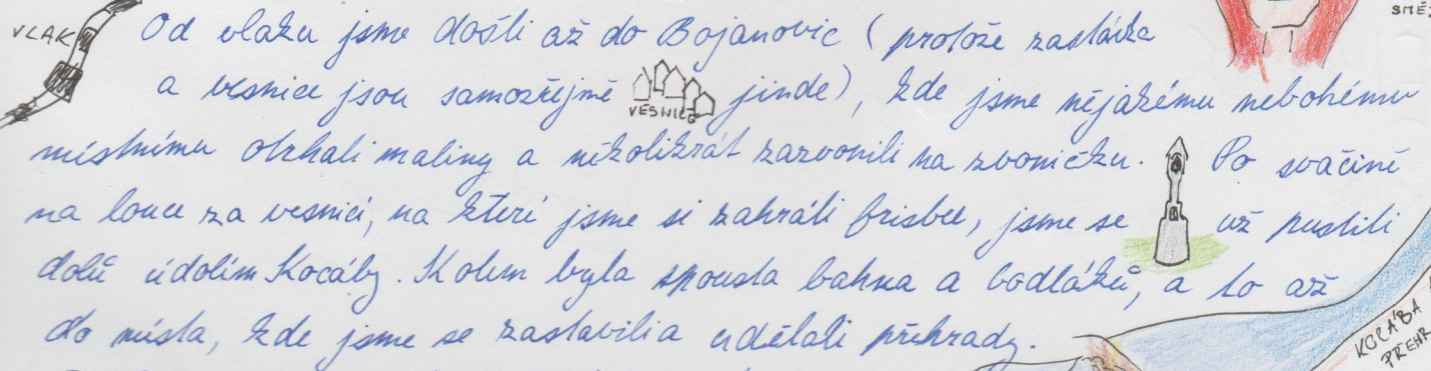 VLAK
Od vlaku jsme došli až do Bojanovic (protože zastávka
a vesnice jsou samozřejmě jinde), kde jsme nějakému nebohému
VESNICE
místnímu otrhali maliny a několikrát zazvonili na zvoničku. Po svačině
na louce za vesnicí, na které jsme si zahráli frisbee, jsme se už pustili
dolů údolím Kocáby. Kolem byla spousta bahna a bodláků, a to až
do místa, kde jsme se zastavili a udělali přehrady.
KOCÁBA
PŘEHR
SMĚ